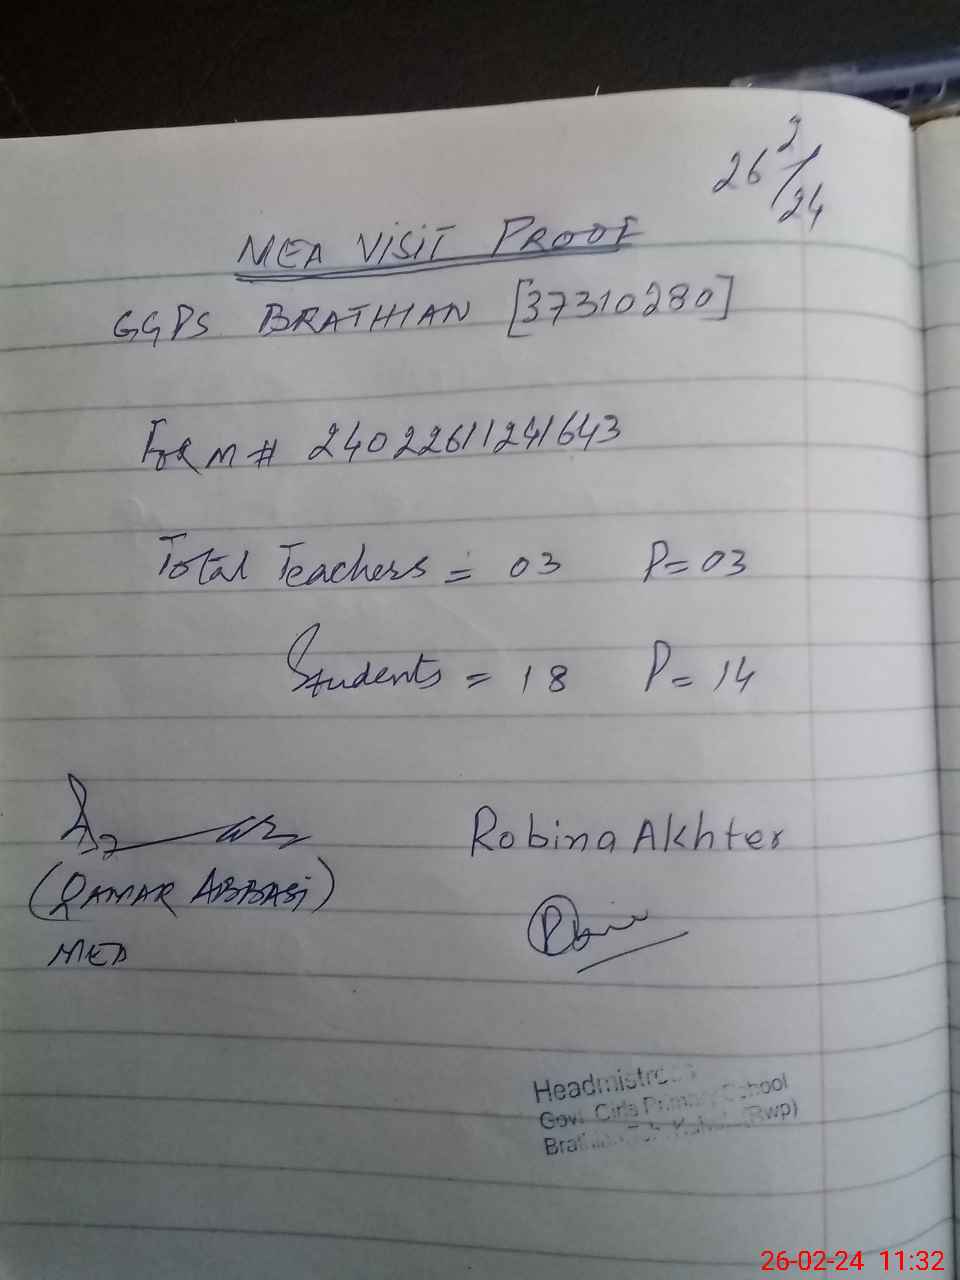 26 2/24
MEA VISIT PROOF
GGPS BRATHIAN [37310280]
FORM # 24022611241643
Total Teachers = 03 P= 03
Students = 18 P= 14
Robina Akhter
(QAMAR ABBASI)
MEA
Headmistress
Govt Girls Primary School
(Rwp)
26-02-24 11:32